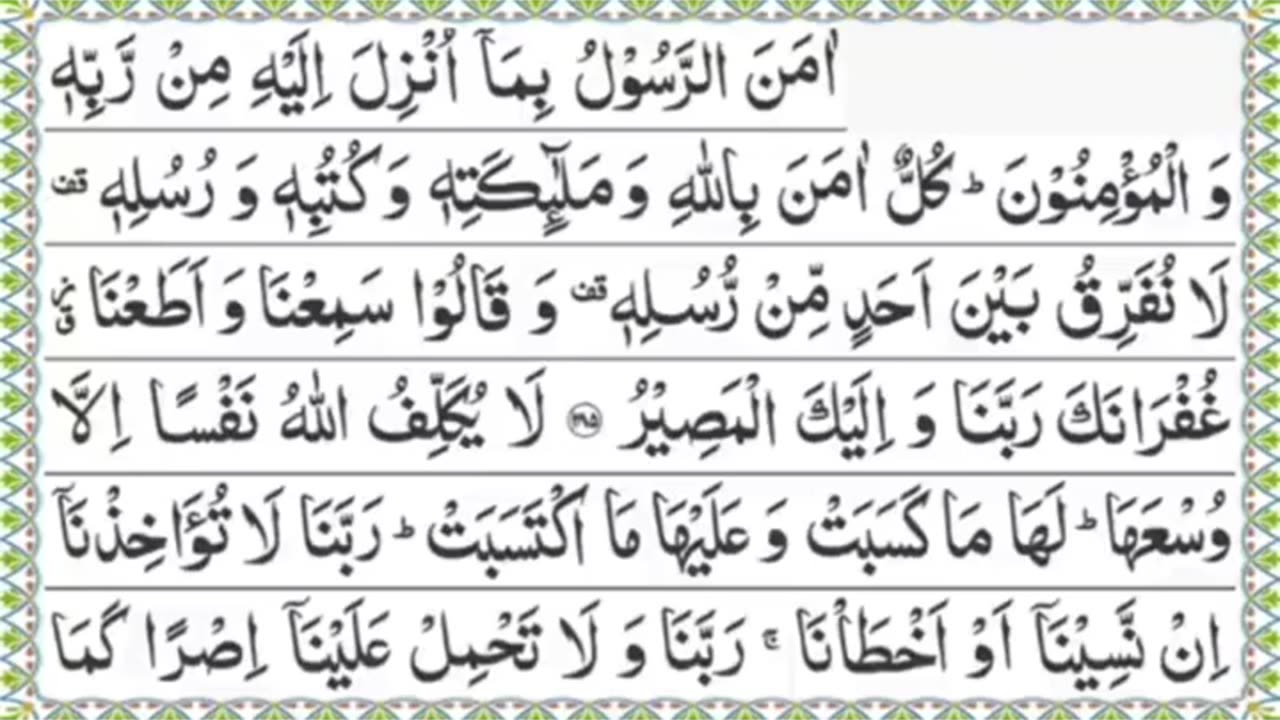 اٰمَنَ الرَّسُوْلُ بِمَاۤ اُنْزِلَ اِلَیْهِ مِنْ رَّبِّهٖ
وَ الْمُؤْمِنُوْنَ ؕ كُلٌّ اٰمَنَ بِاللّٰهِ وَ مَلٰٓىٕكَتِهٖ وَ كُتُبِهٖ وَ رُسُلِهٖ قف
لَا نُفَرِّقُ بَیْنَ اَحَدٍ مِّنْ رُّسُلِهٖ قف وَ قَالُوْا سَمِعْنَا وَ اَطَعْنَا
غُفْرَانَكَ رَبَّنَا وَ اِلَیْكَ الْمَصِیْرُ ﴿۲۸۵﴾ لَا یُكَلِّفُ اللّٰهُ نَفْسًا اِلَّا
وُسْعَهَا ؕ لَهَا مَا كَسَبَتْ وَ عَلَیْهَا مَا اكْتَسَبَتْ ؕ رَبَّنَا لَا تُؤَاخِذْنَاۤ
اِنْ نَّسِیْنَاۤ اَوْ اَخْطَاْنَا ۚ رَبَّنَا وَ لَا تَحْمِلْ عَلَیْنَاۤ اِصْرًا كَمَا